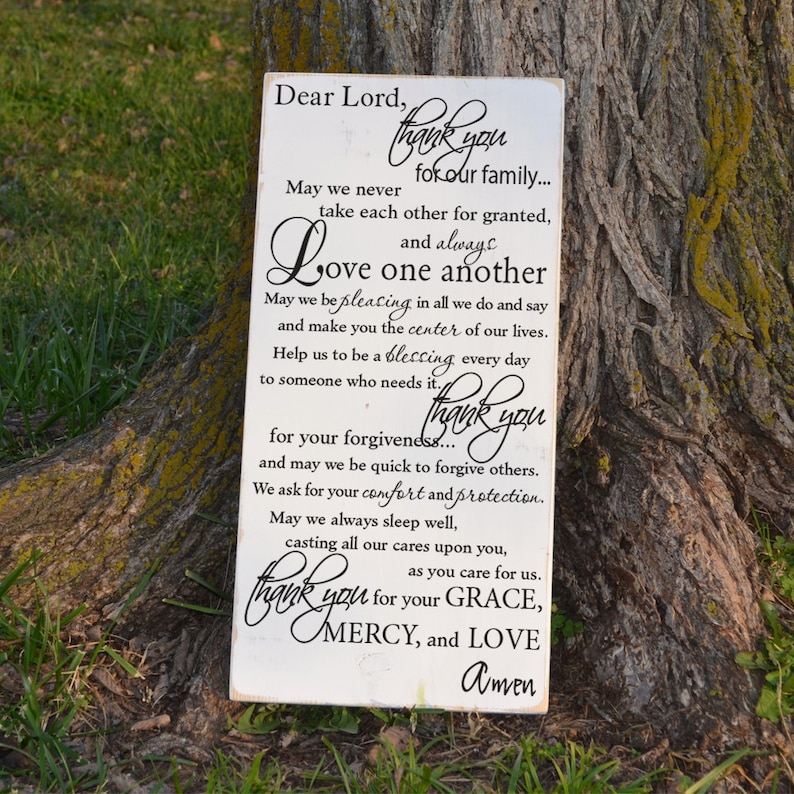 Dear Lord,
thank you
for our family...
May we never
take each other for granted,
and always
Love one another
May we be pleasing in all we do and say
and make you the center of our lives.
Help us to be a blessing every day
to someone who needs it.
thank you
for your forgiveness...
and may we be quick to forgive others.
We ask for your comfort and protection.
May we always sleep well,
casting all our cares upon you,
as you care for us.
thank you for your GRACE,
MERCY, and LOVE
Amen